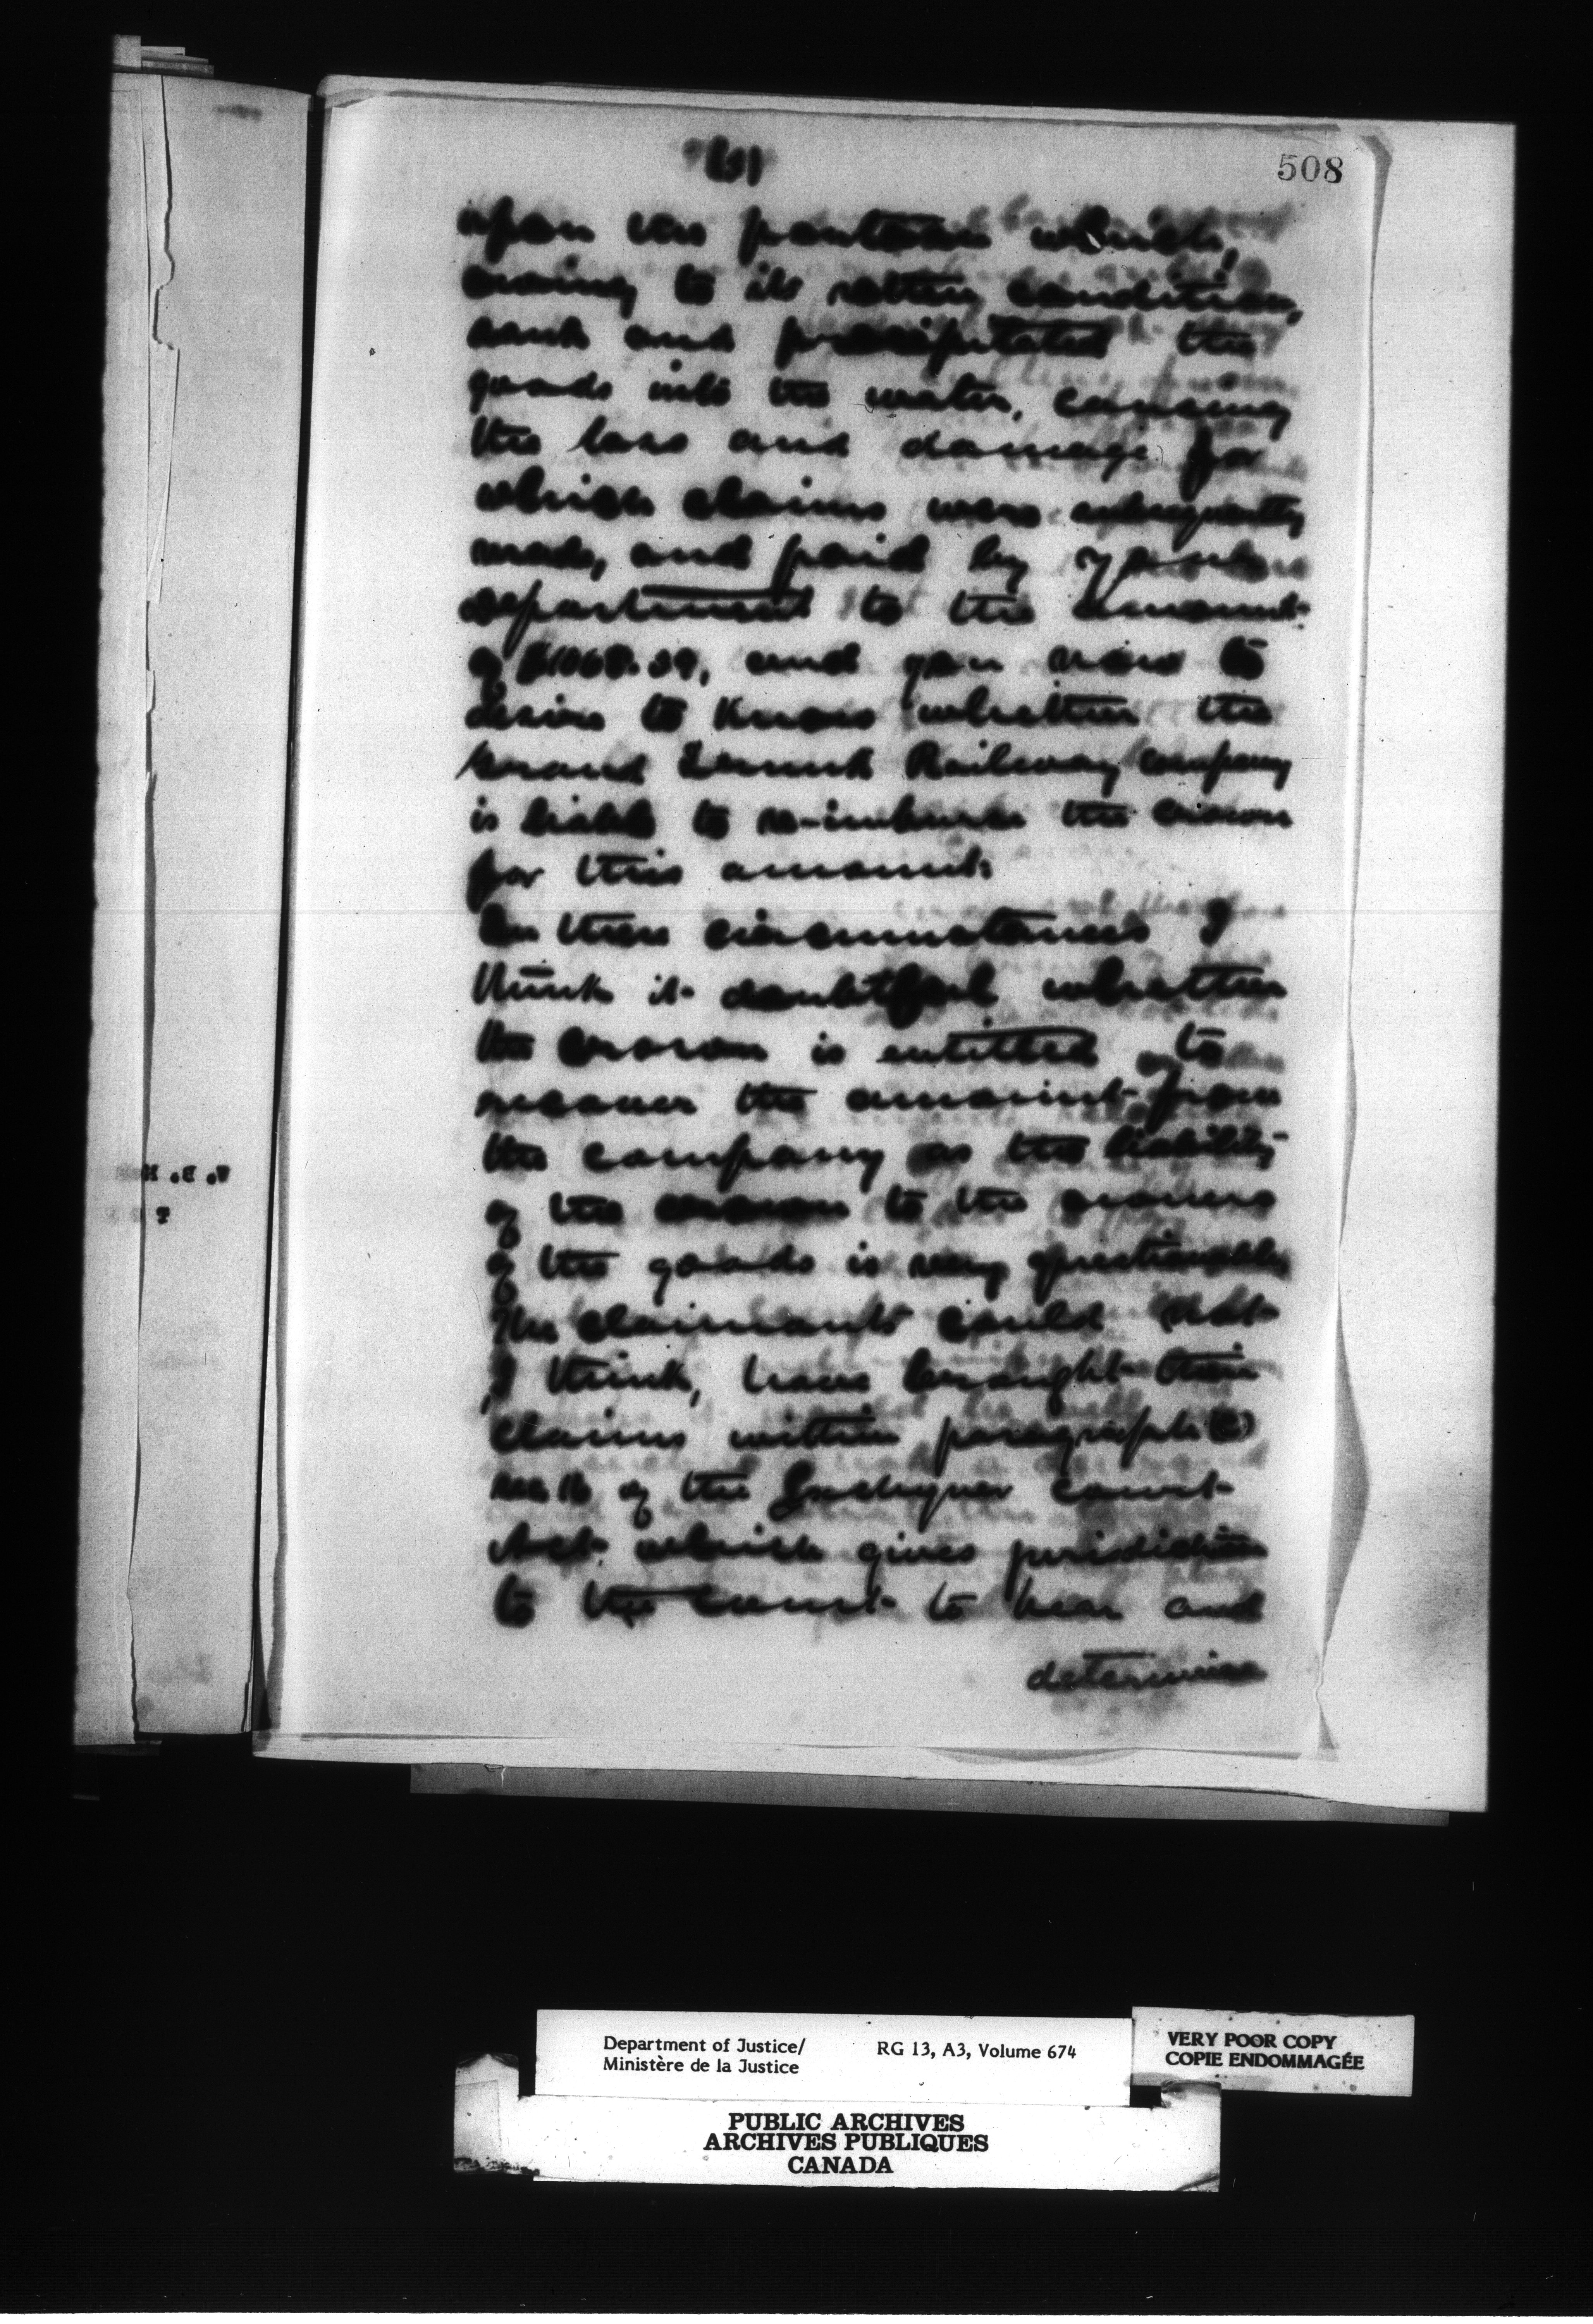 (3)
508
upon the pontoon which,
owing to its rotten condition,
sank and precipitated the
goods into the water, causing
the loss and damage for
which claims were subsequently
made, and paid by your
department to the amount
of and you now
desire to know whether the
Grand Trunk Railway company
is liable to re-imburse the crown
for this amount.
In these circumstances I
think it doubtful whether
the crown is entitled to
recover the amount from
the company as the liability
of the crown to the owners
of the goods is very questionable
The claimants could not
I think, have brought their
claims within paragraph (c)
sec 16 of the Exchequer court
Act which gives jurisdiction
to the court to hear and
determine
Department of Justice/
Ministère de la Justice
RG 13, A3, Volume 674
VERY POOR COPY
COPIE ENDOMMAGÉE
PUBLIC ARCHIVES
ARCHIVES PUBLIQUES
CANADA